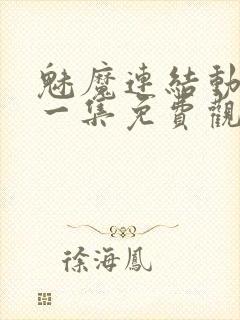 魅魔連結動
一集免費觀
徐海鳳